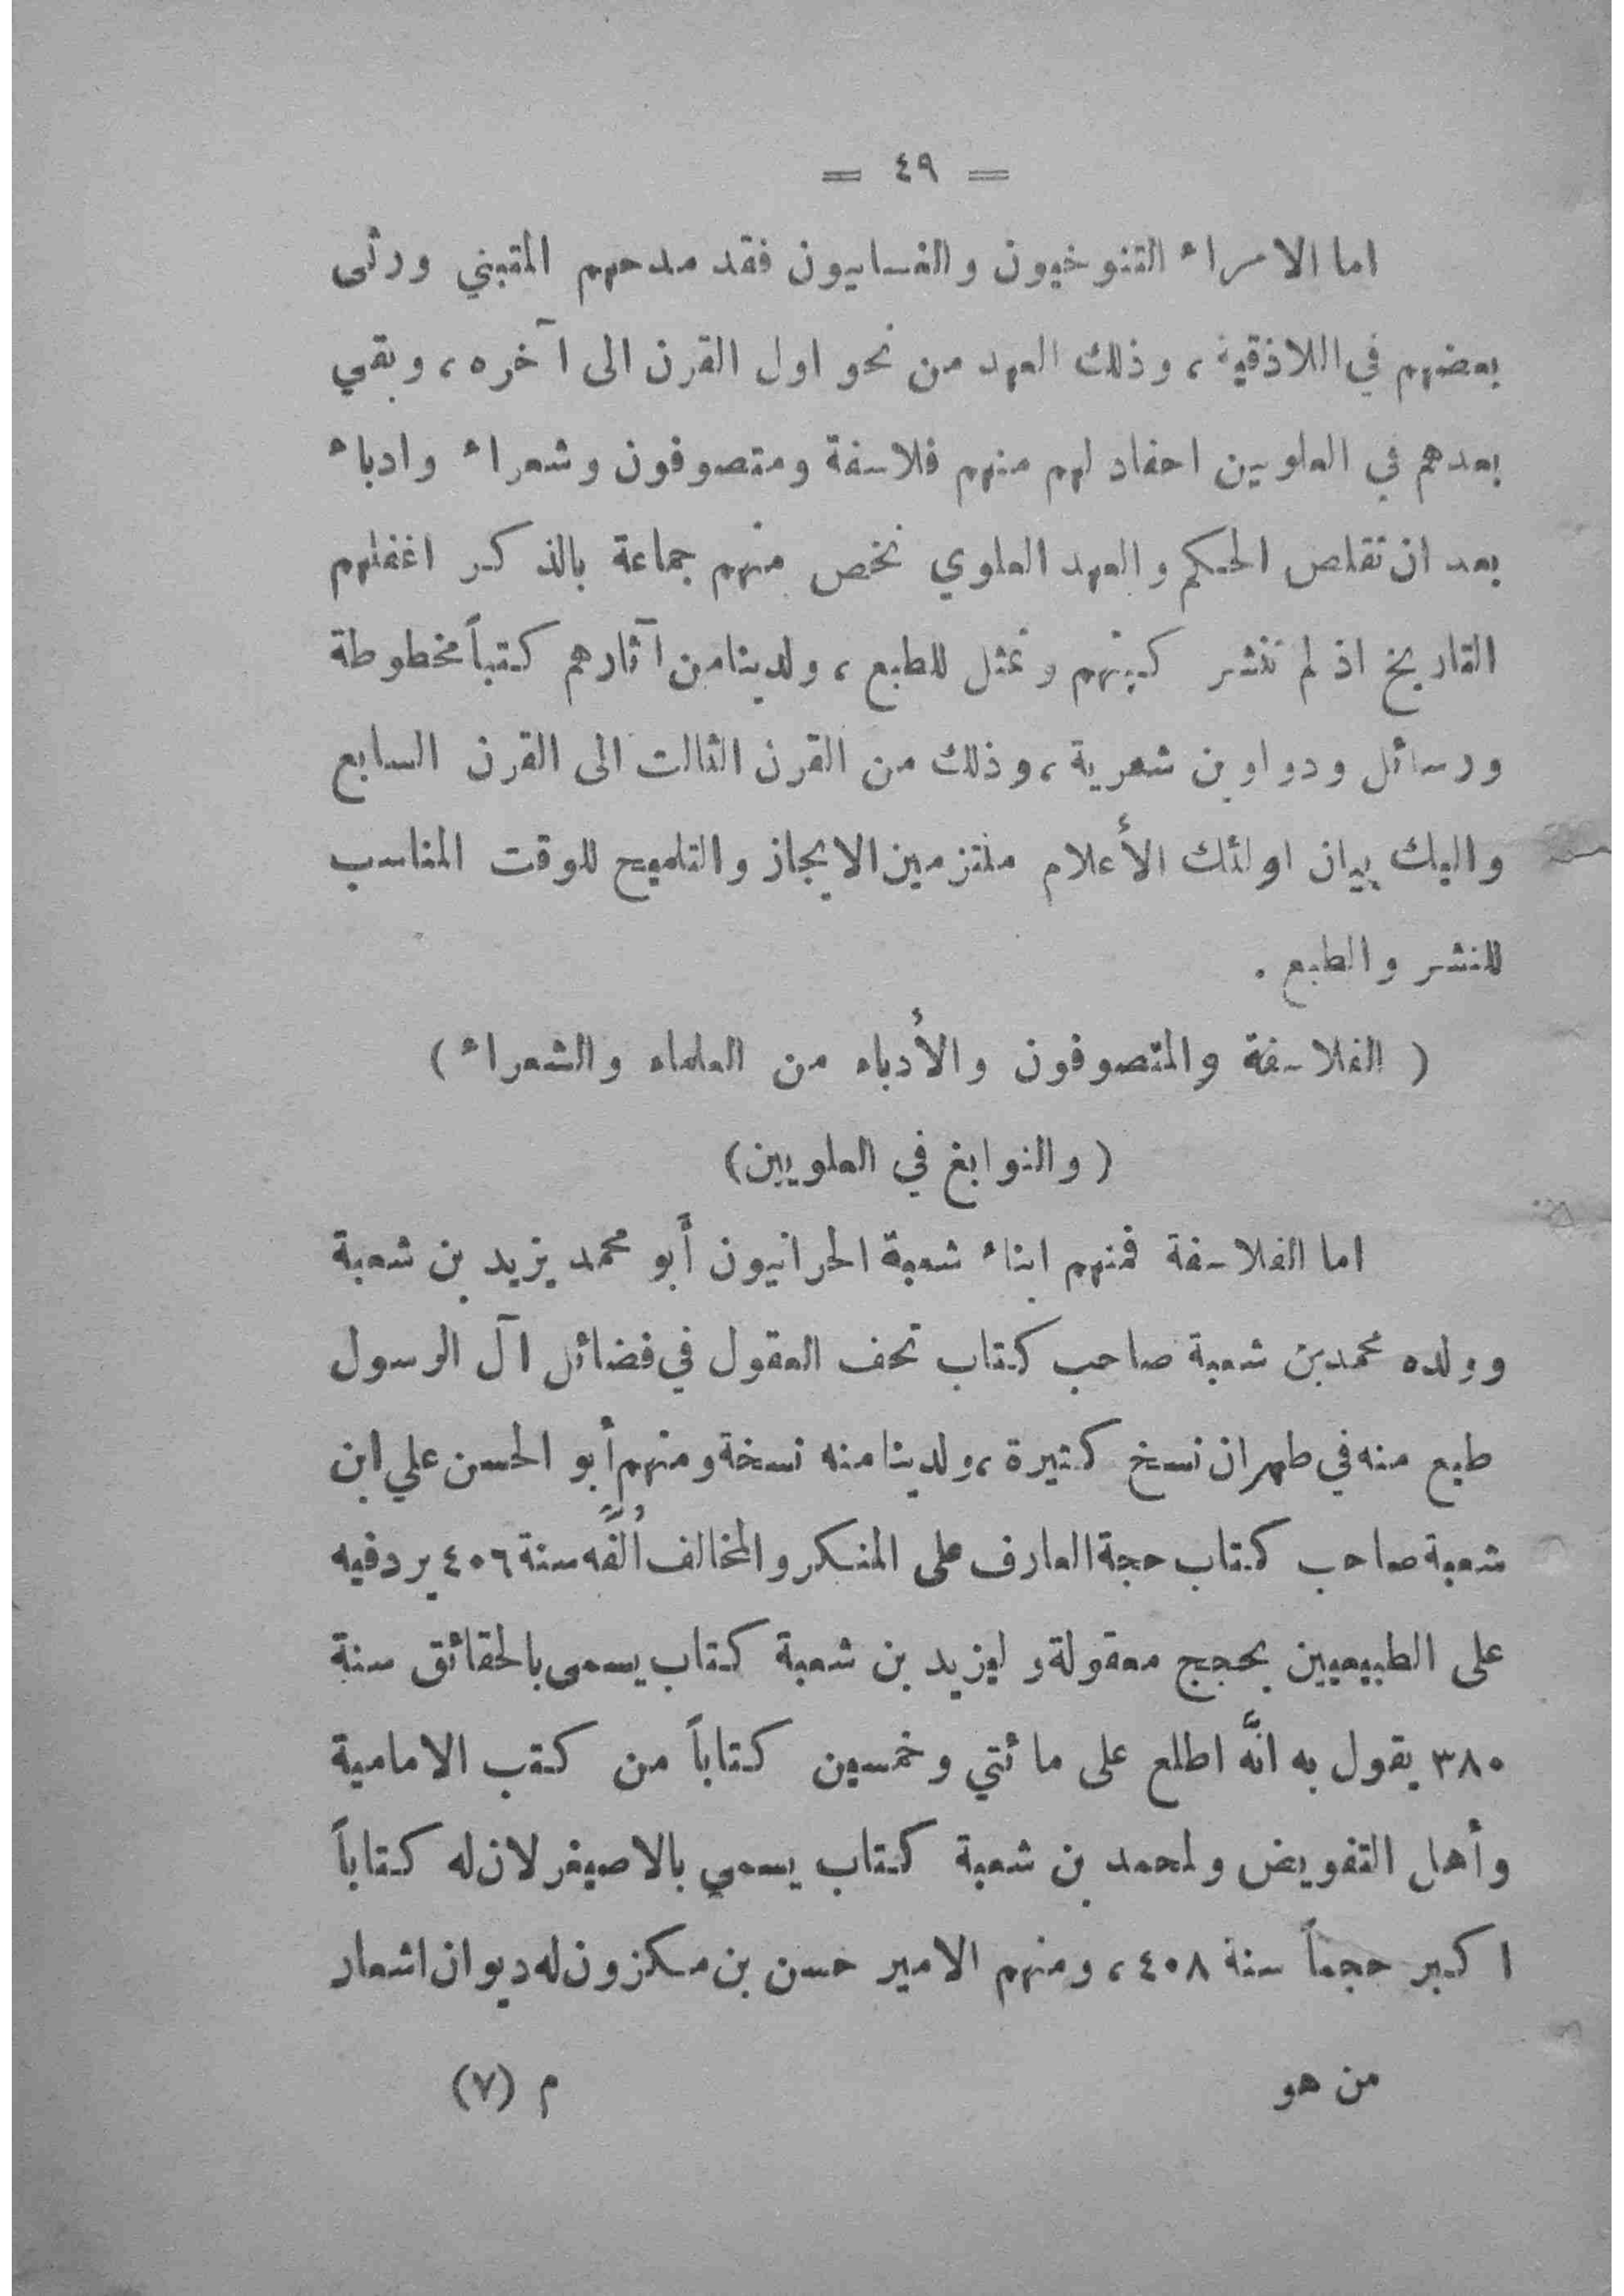 = ٤٩ =
اما الامراء التنوخيون والغسانيون فقد مدحهم المتنبي ورثى
بعضهم في اللاذقية ، وذلك العهد من نحو اول القرن الى آخره ، وبقي
بعدهم في العلويين احفاد لهم منهم فلاسفة ومتصوفون وشعراء وادباء
بعد ان تقلص الحكم والعهد العلوي نخص منهم جماعة بالذكر اغفلهم
التاريخ اذ لم تنشر كتبهم وتمثل للطبع ، ولدينا من آثارهم كتباً مخطوطة
ورسائل ودواوين شعرية ، وذلك من القرن الثالث الى القرن السابع
واليك بيان اولئك الأعلام ملتزمين الايجاز والتلميح للوقت المناسب
للنشر والطبع .
( الفلاسفة والمتصوفون والأدباء من العلماء والشعراء )
( والنوابغ في العلويين )
اما الفلاسفة فمنهم ابناء شعبة الحرانيون أبو محمد يزيد بن شعبة
وولده محمد بن شعبة صاحب كتاب تحف العقول في فضائل آل الرسول
طبع منه في طهران نسخ كثيرة ، ولدينا منه نسخة ومنهم أبو الحسن علي ابن
شعبة صاحب كتاب حجة العارف على المنكر والمخالف ألَّفه سنة ٤٠٦ يرد فيه
على الطبيعيين بحجج معقولة و ليزيد بن شعبة كتاب يسمى بالحقائق سنة
٣٨٠ يقول به انَّه اطلع على مائتي وخمسين كتاباً من كتب الامامية
وأهل التفويض ولمحمد بن شعبة كتاب يسمي بالاصيفر لان له كتاباً
اكبر حجماً سنة ٤٠٨ ، ومنهم الامير حسن بن مكزون له ديوان اشعار
من هو م (٧)